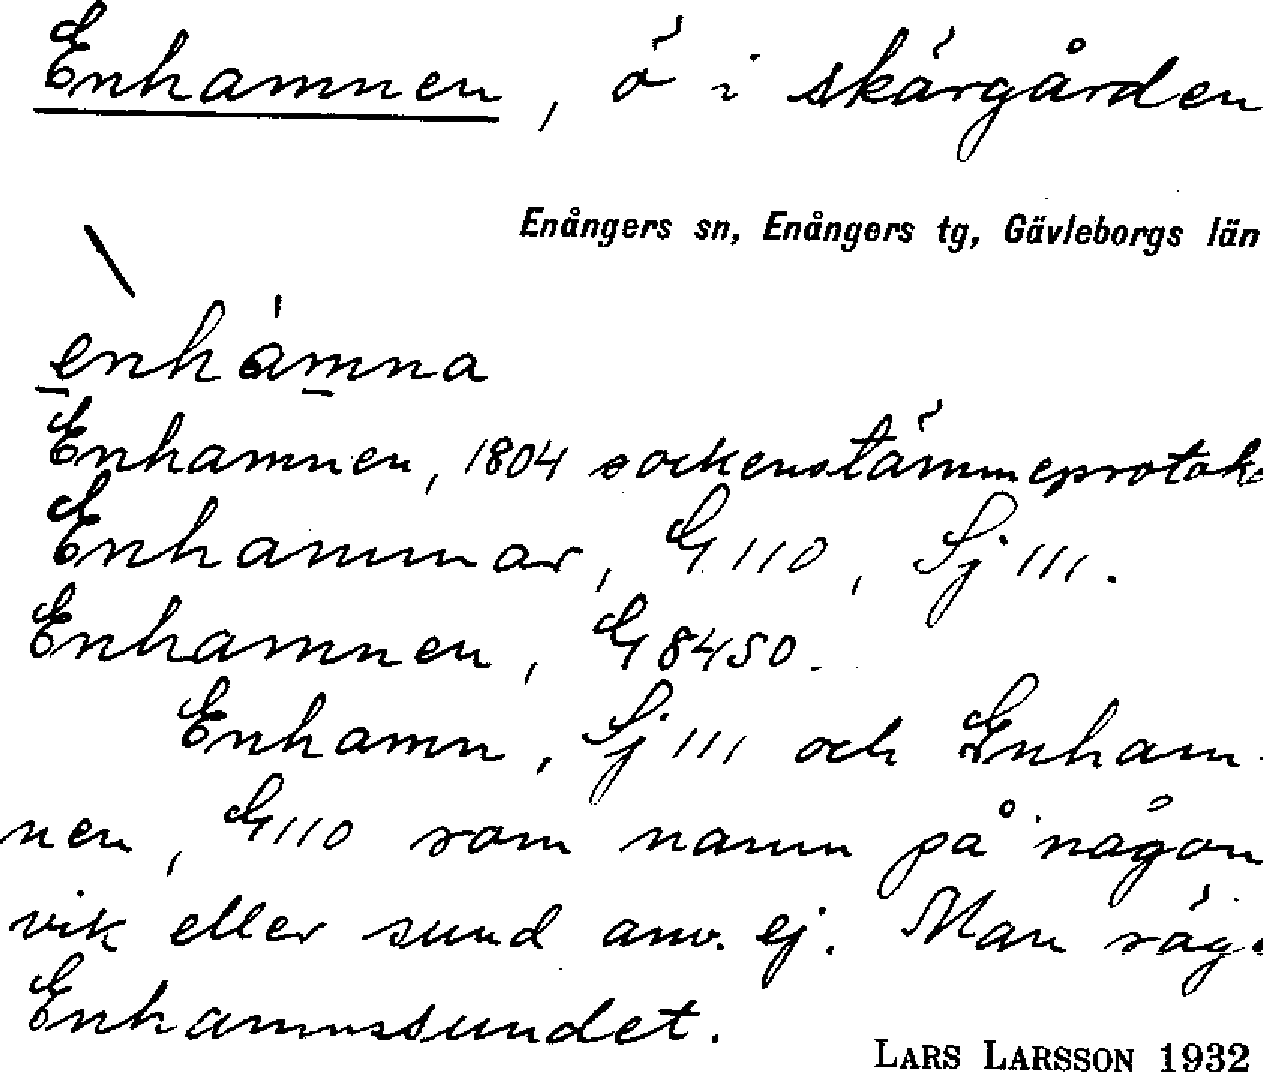 Enhamnen, ö i skärgården
Enångers sn, Enångers tg, Gävleborgs län
enhamna
Enhamnen, 1804 sockenstämmeprotok
Enhammar, G 110, Sj 111.
Enhamnen, G 8450.
Enhamn, Sj 111 och Enham-
nen, G 110 som namn på någon
vik eller sund anv. ej. Man säg
Enhamnssundet.
LARS LARSSON 1932